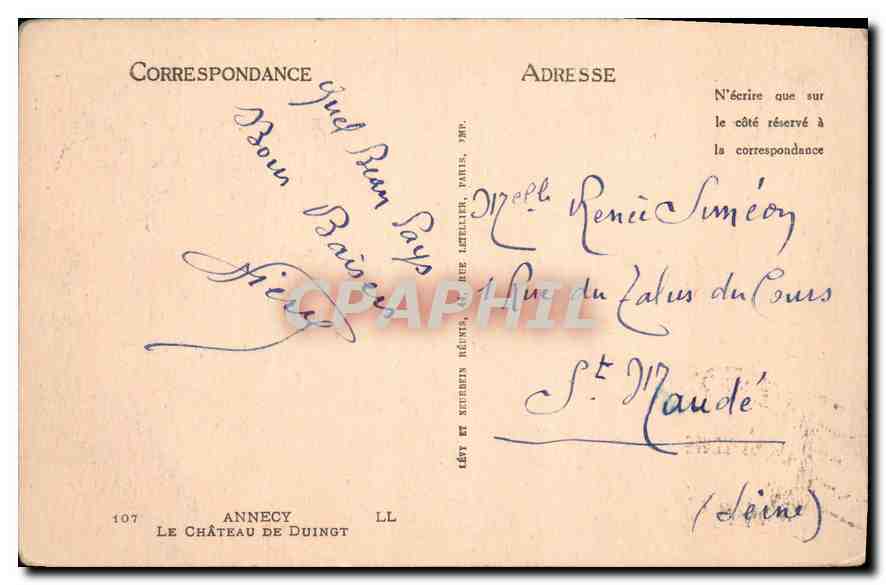 CORRESPONDANCE
ADRESSE
N'écrire que sur
le côté réservé à
la correspondance
Quel Beau Pays
Bons Baisers
LÉVY ET NEURDEIN RÉUNIS, 44, RUE LETELLIER, PARIS, IMP.
Melle Renée Siméon
1 Rue du Talus du Cours
St Mandé
(Seine)
CPAPHIL
107 ANNECY LL
LE CHÂTEAU DE DUINGT